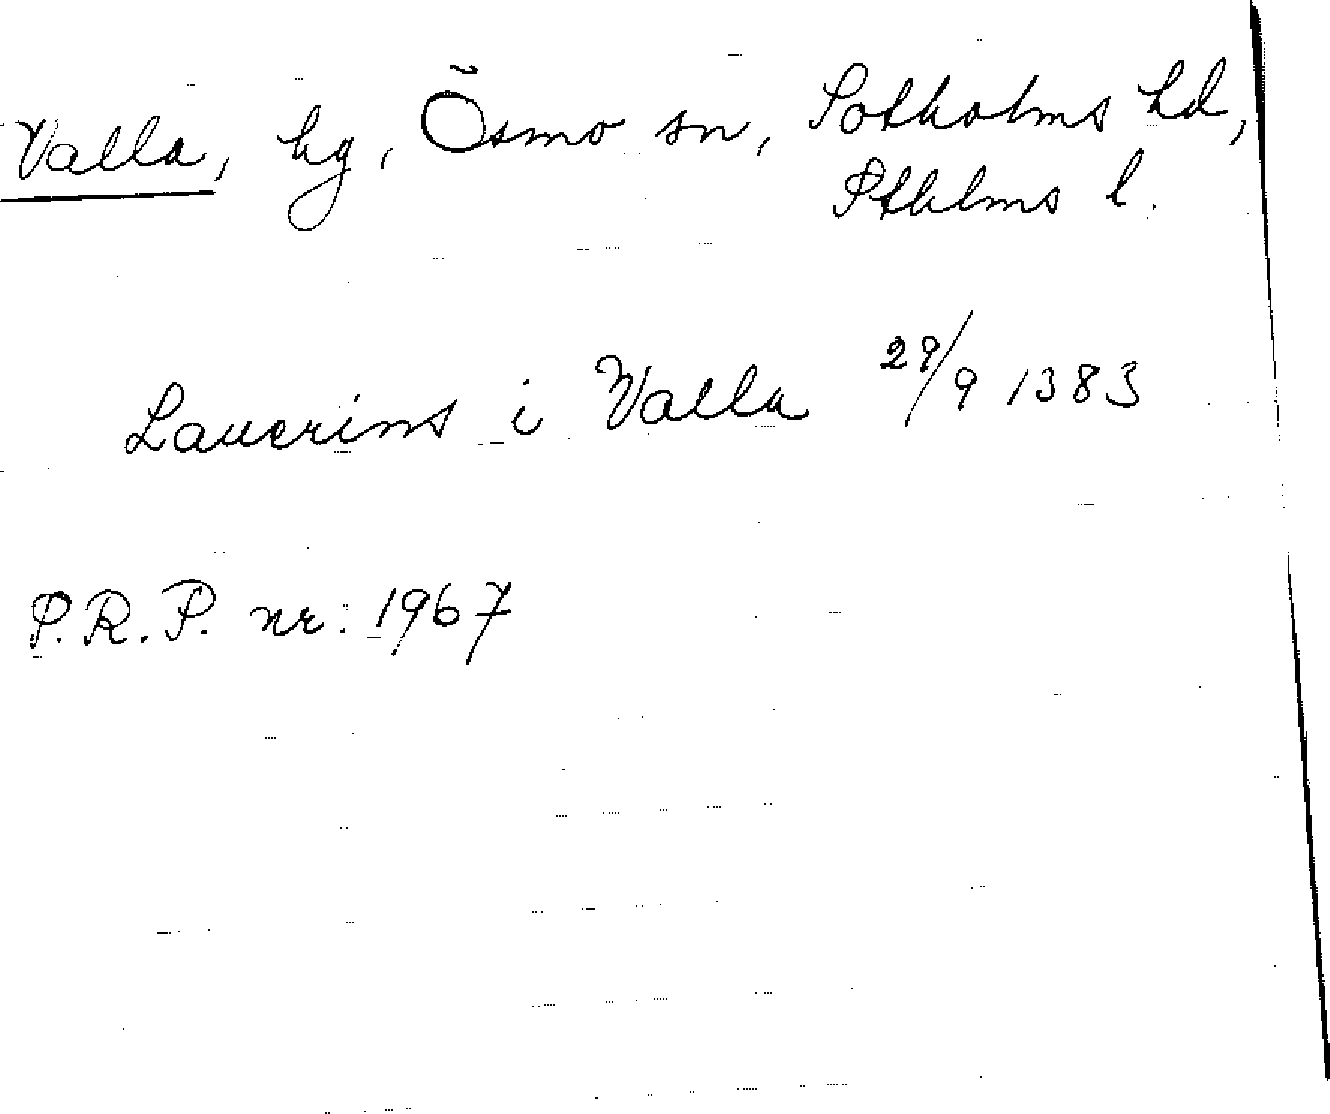 Valla, hg, Ösmo sn, Sotholms hd,
Sthlms l.
Laucrins i Valla 29/9 1383
P.R.P. nr: 1967